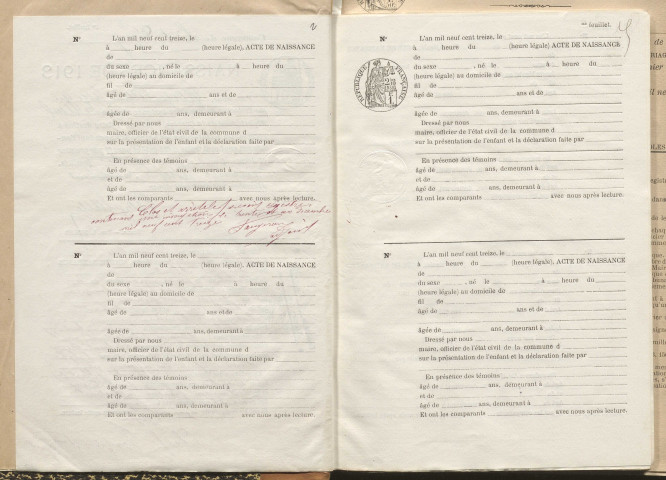 2
N° L'an mil neuf cent treize, le
à heure du (heure légale) ACTE DE NAISSANCE
de
du sexe , né le à heure du
(heure légale) au domicile de
fil de
âgé de ans et de
âgée de ans, demeurant à
Dressé par nous
maire, officier de l'état civil de la commune d
sur la présentation de l'enfant et la déclaration faite par
En présence des témoins
âgé de ans, demeurant à
et de
âgé de ans, demeurant à
Et ont les comparants avec nous après lecture.
Clos et arrêté
mil neuf cent treize
N° L'an mil neuf cent treize, le
à heure du (heure légale), ACTE DE NAISSANCE
de
du sexe , né le à heure du
(heure légale) au domicile de
fil de
âgé de ans et de
âgée de ans, demeurant à
Dressé par nous
maire, officier de l'état civil de la commune d
sur la présentation de l'enfant et la déclaration faite par
En présence des témoins
âgé de ans, demeurant à
et de
âgé de ans, demeurant à
Et ont les comparants avec nous après lecture.
feuillet.
N° L'an mil neuf cent treize, le
à heure du (heure légale) ACTE DE NAISSANCE
de
du sexe , né le à heure du
(heure légale) au domicile de
fil de
âgé de ans et de
âgée de ans, demeurant à
Dressé par nous
maire, officier de l'état civil de la commune d
sur la présentation de l'enfant et la déclaration faite par
En présence des témoins
âgé de ans, demeurant à
et de
âgé de ans, demeurant à
Et ont les comparants avec nous après lecture.
RÉPUBLIQUE FRANÇAISE
N° L'an mil neuf cent treize, le
à heure du (heure légale), ACTE DE NAISSANCE
de
du sexe , né le à heure du
(heure légale) au domicile de
fil de
âgé de ans et de
âgée de ans, demeurant à
Dressé par nous
maire, officier de l'état civil de la commune d
sur la présentation de l'enfant et la déclaration faite par
En présence des témoins
âgé de ans, demeurant à
et de
âgé de ans, demeurant à
Et ont les comparants avec nous après lecture.